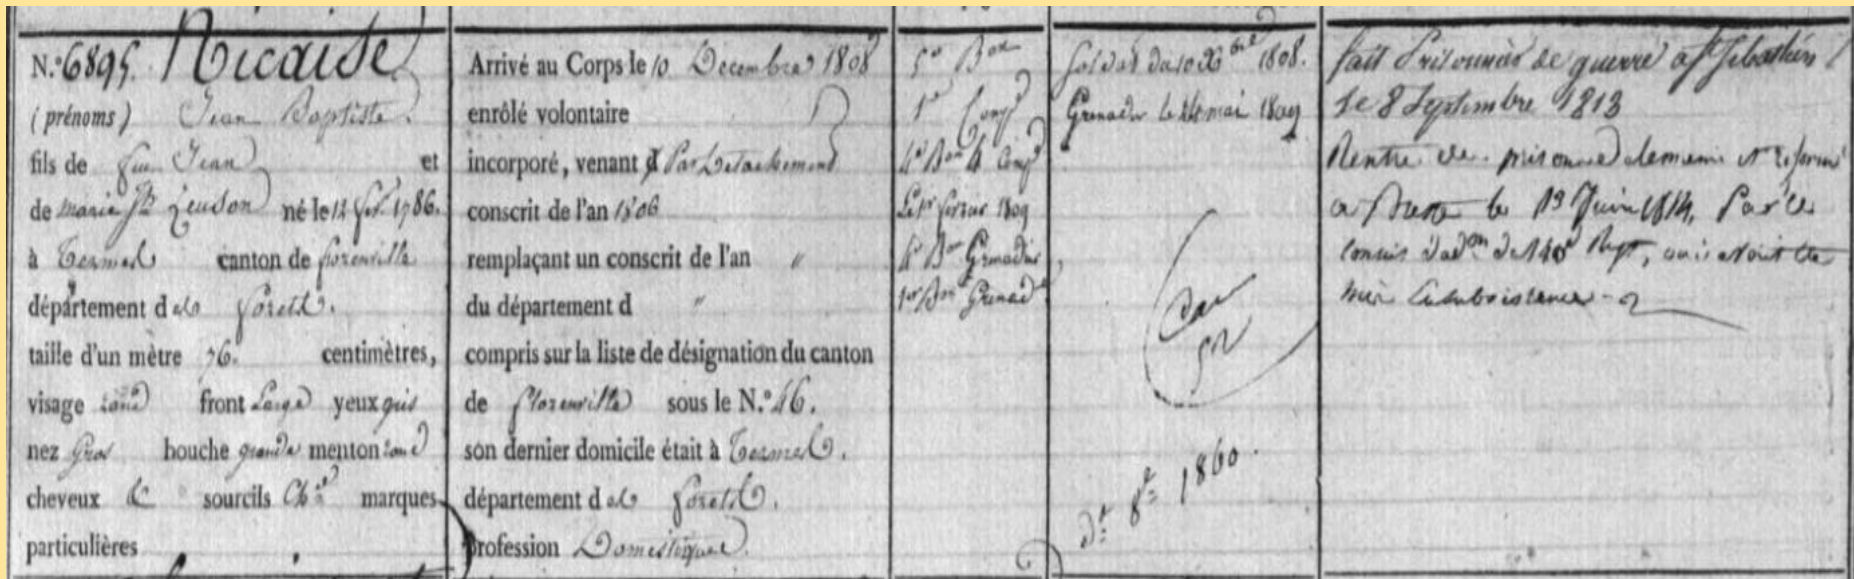 N.° 6895. Nicaise
(prénoms) Jean Baptiste
fils de feu Jean et
de marie né le 12 1786.
à Termes canton de florenville
département des forets.
taille d'un mètre 76. centimètres,
visage rond front Large yeux gris
nez Gros bouche grande menton rond
cheveux & sourcils Ch. marques
particulières
Arrivé au Corps le 10 Decembre 1808
enrôlé volontaire
incorporé, venant d Par Detachement
conscrit de l'an 1806
remplaçant un conscrit de l'an "
du département d "
compris sur la liste de désignation du canton
de florenville sous le N.° 46.
son dernier domicile était à Termes.
département des forets.
profession Domestique
5e Bon
1e Comp
4e Bon 4 Comp
Le 1er fevrier 1809
4e Bon Grenadier
1er Bon Grenad
Soldat du 10 Xbre 1808.
Grenadier le mai 1809
fait Prisonnier de guerre a St Sebastien
le 8 Septembre 1813
Rentré des prisons et reformé
a Brest le 13 Juin 1814, Par le
conseil d'adon du 140e Regt, ou il etoit en
subsistance
1860.